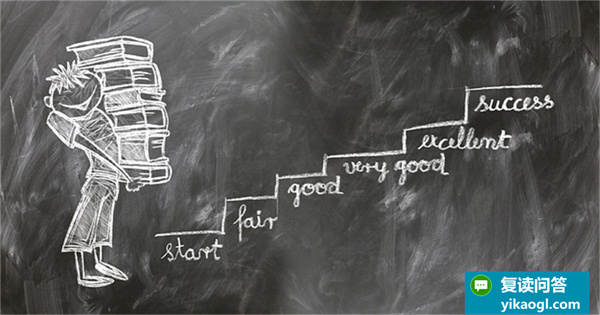 start
fair
good
very good
excellent
success
复读问答
yikaogl.com